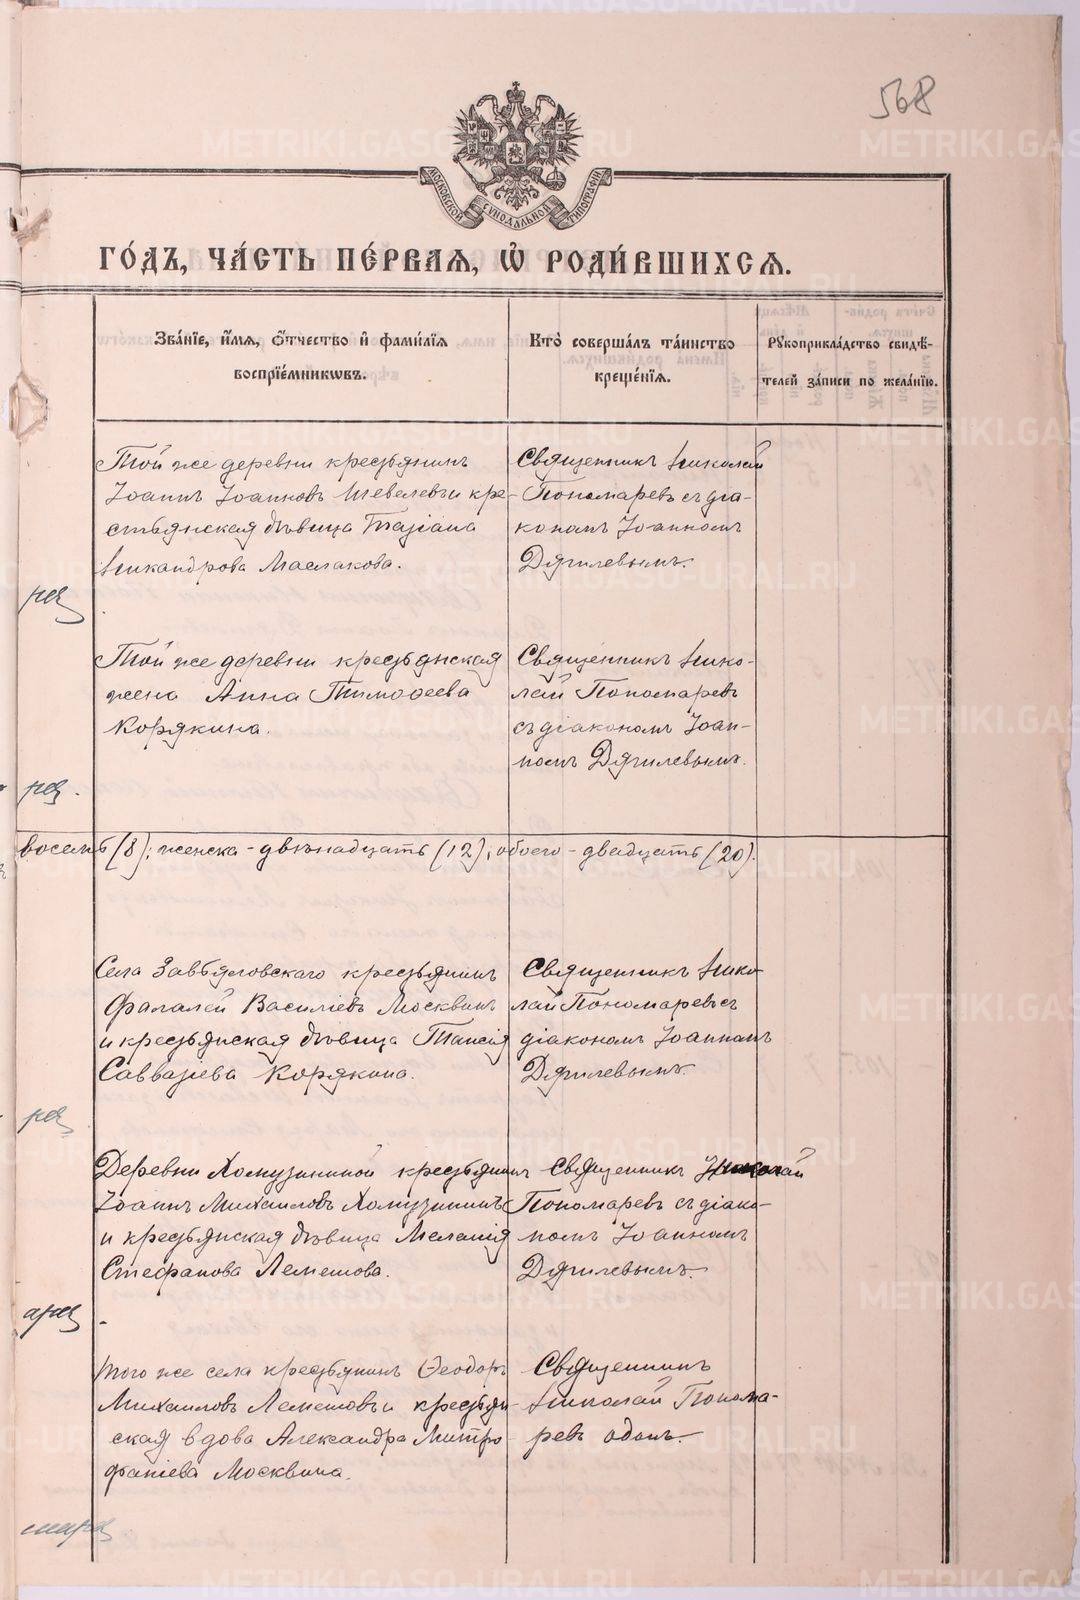 568
МОСКОВСКОЙ СѴНОДАЛЬНОЙ ТИПОГРАФІИ
ГО́ДЪ, ЧА́СТЬ ПЕ́РВАѦ, Ѽ РОДИ́ВШИХСѦ.
Зва́нїе, и҆́мѧ, ѻ҆́тчество и҆ фами́лїѧ
воспрїе́мникѡвъ.
Кто̀ соверша́лъ та́инство
креще́нїѧ.
Рꙋкоприкла́дство свидѣ́-
телей за́писи по жела́нїю.
Той же деревни крестьянинъ
Іоаннъ Іоанновъ Шевелевъ и кре-
стьянская дѣвица Татіана
Никандрова Маслакова.
Священникъ Николай
Пономаревъ съ діа-
кономъ Іоанномъ
Дягилевымъ.
Той же деревни крестьянская
жена Анна Тимоѳеева
Корякина.
Священникъ Нико-
лай Пономаревъ
съ діакономъ Іоан-
номъ Дягилевымъ.
восемь (8); женска - двѣнадцать (12), обоего - двадцать (20).
Села Завьяловскаго крестьянинъ
Фалалей Василіевъ Москвинъ
и крестьянская дѣвица Таисія
Савватіева Корякина.
Священникъ Нико-
лай Пономаревъ съ
діакономъ Іоанномъ
Дягилевымъ.
Деревни Хомутининой крестьянинъ
Іоаннъ Михаиловъ Хомутининъ
и крестьянская дѣвица Меланія
Стефанова Лемешова.
Священникъ Николай
Пономаревъ съ діако-
номъ Іоанномъ
Дягилевымъ.
того же села крестьянинъ Ѳеодоръ
Михаиловъ Лемешовъ и крестьян-
ская вдова Александра Митро-
фаніева Москвина.
Священникъ
Николай Понома-
ревъ одинъ.